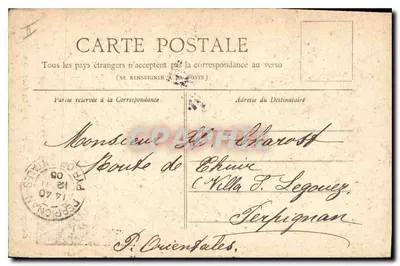 CARTE POSTALE
Tous les pays étrangers n'acceptent pas la correspondance au verso
(SE RENSEIGNER A LA POSTE)
Partie réservée à la Correspondance
Adresse du Destinataire
Monsieur
Route de Thuir
(Villa J.
Perpignan
P. Orientales.
PERPIGNAN
14 40
12
05